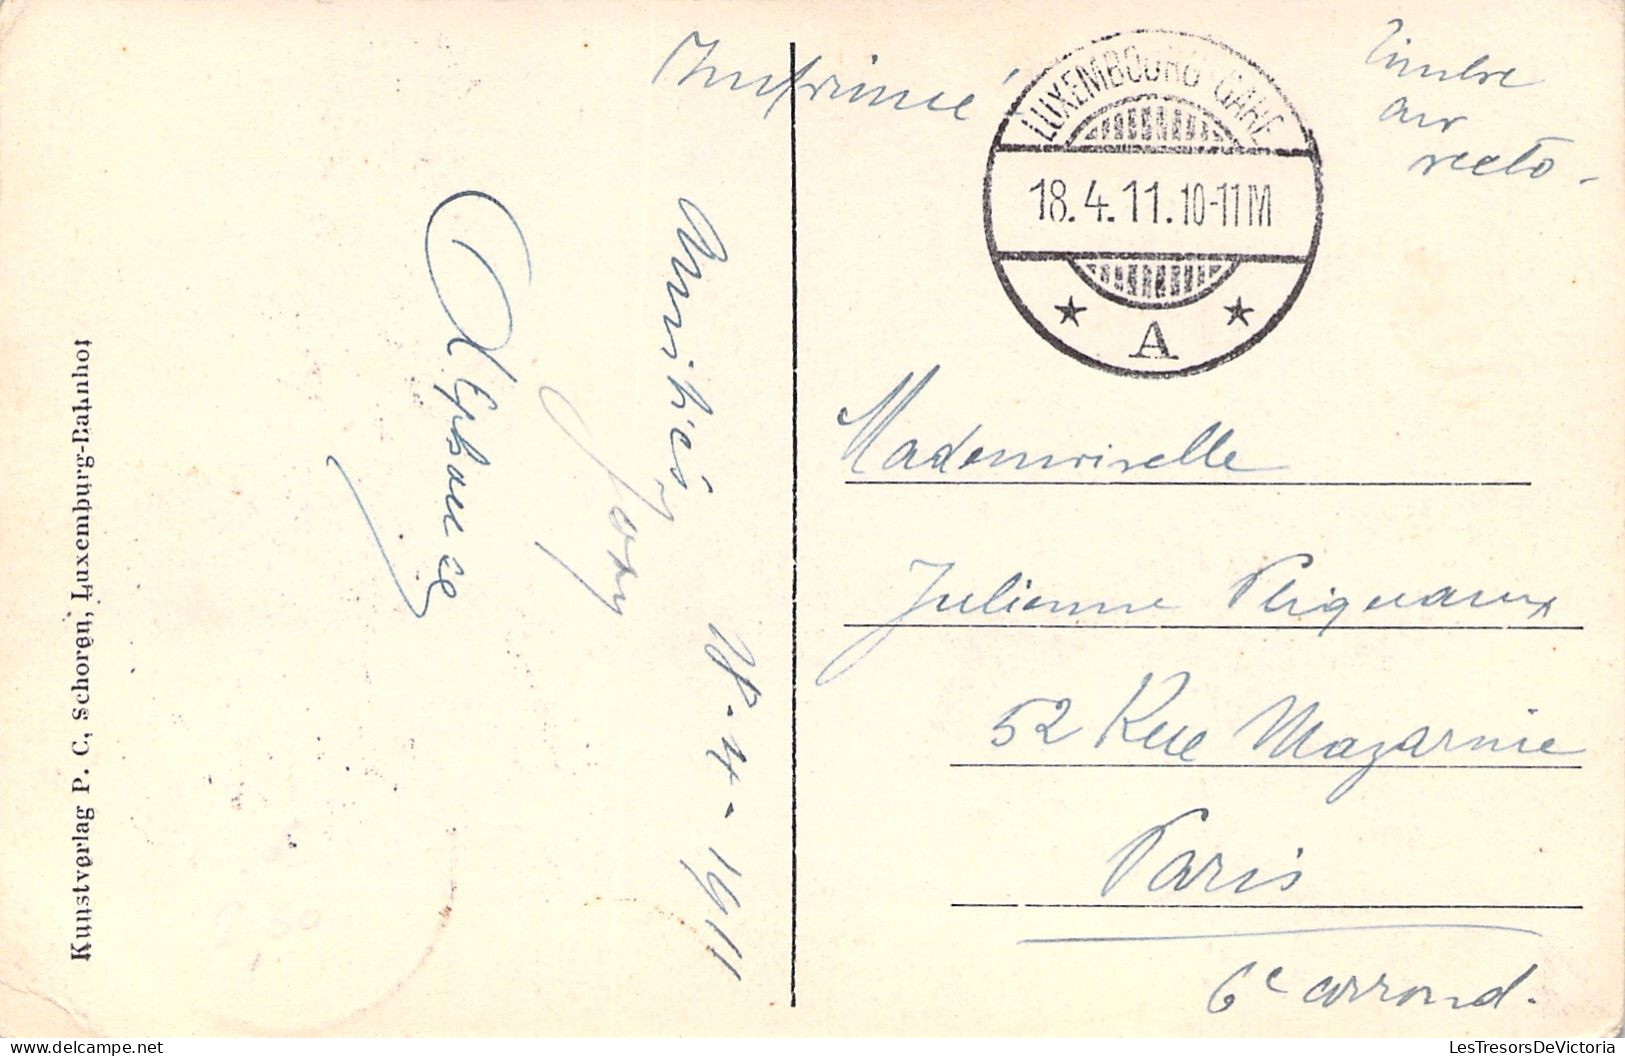 Imprimé
Timbre
au
recto -
LUXEMBOURG-GARE
18.4.11.10-11M
A
Amitiés
18-4-1911
Alphonse
Mademoiselle
Julienne
52 Rue Mazarine
Paris
6e arrond.
Kunstverlag P. C. Schoren, Luxemburg-Bahnhof
LesTresorsDeVictoria